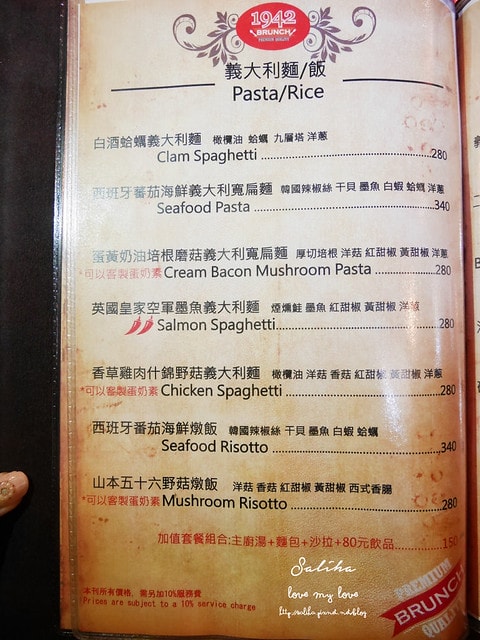 1942
BRUNCH
PREMIUM QUALITY
義大利麵/飯
Pasta/Rice
白酒蛤蠣義大利麵 橄欖油 蛤蠣 九層塔 洋蔥
Clam Spaghetti 280
西班牙蕃茄海鮮義大利寬扁麵 韓國辣椒絲 干貝 墨魚 白蝦 蛤蠣 洋蔥
Seafood Pasta 340
蛋黃奶油培根磨菇義大利寬扁麵 厚切培根 洋菇 紅甜椒 黃甜椒 洋蔥
*可以客製蛋奶素 Cream Bacon Mushroom Pasta 280
英國皇家空軍墨魚義大利麵 煙燻鮭 墨魚 紅甜椒 黃甜椒 洋蔥
Salmon Spaghetti 280
香草雞肉什錦野菇義大利麵 橄欖油 洋菇 香菇 紅甜椒 黃甜椒 洋蔥
*可以客製蛋奶素 Chicken Spaghetti 280
西班牙蕃茄海鮮燉飯 韓國辣椒絲 干貝 墨魚 白蝦 蛤蠣
Seafood Risotto 340
山本五十六野菇燉飯 洋菇 香菇 紅甜椒 黃甜椒 西式香腸
*可以客製蛋奶素 Mushroom Risotto 280
加值套餐組合:主廚湯+麵包+沙拉+80元飲品 150
本刊所有價格，需另加10%服務費
*Prices are subject to a 10% service charge
Saliha
love my love
http://saliha.pixnet.net/blog
PREMIUM
BRUNCH